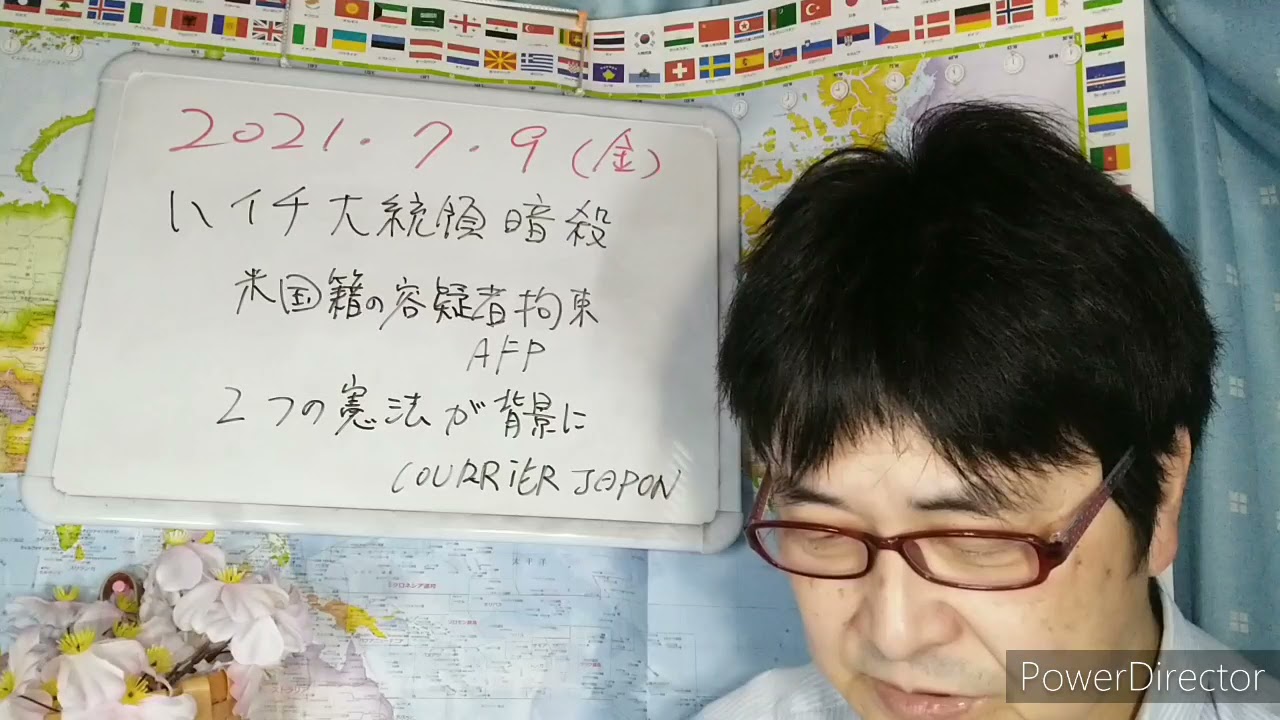 2021.7.9(金)
ハイチ大統領暗殺
米国籍の容疑者拘束
AFP
2つの憲法が背景に
COURRiER JAPON
PowerDirector